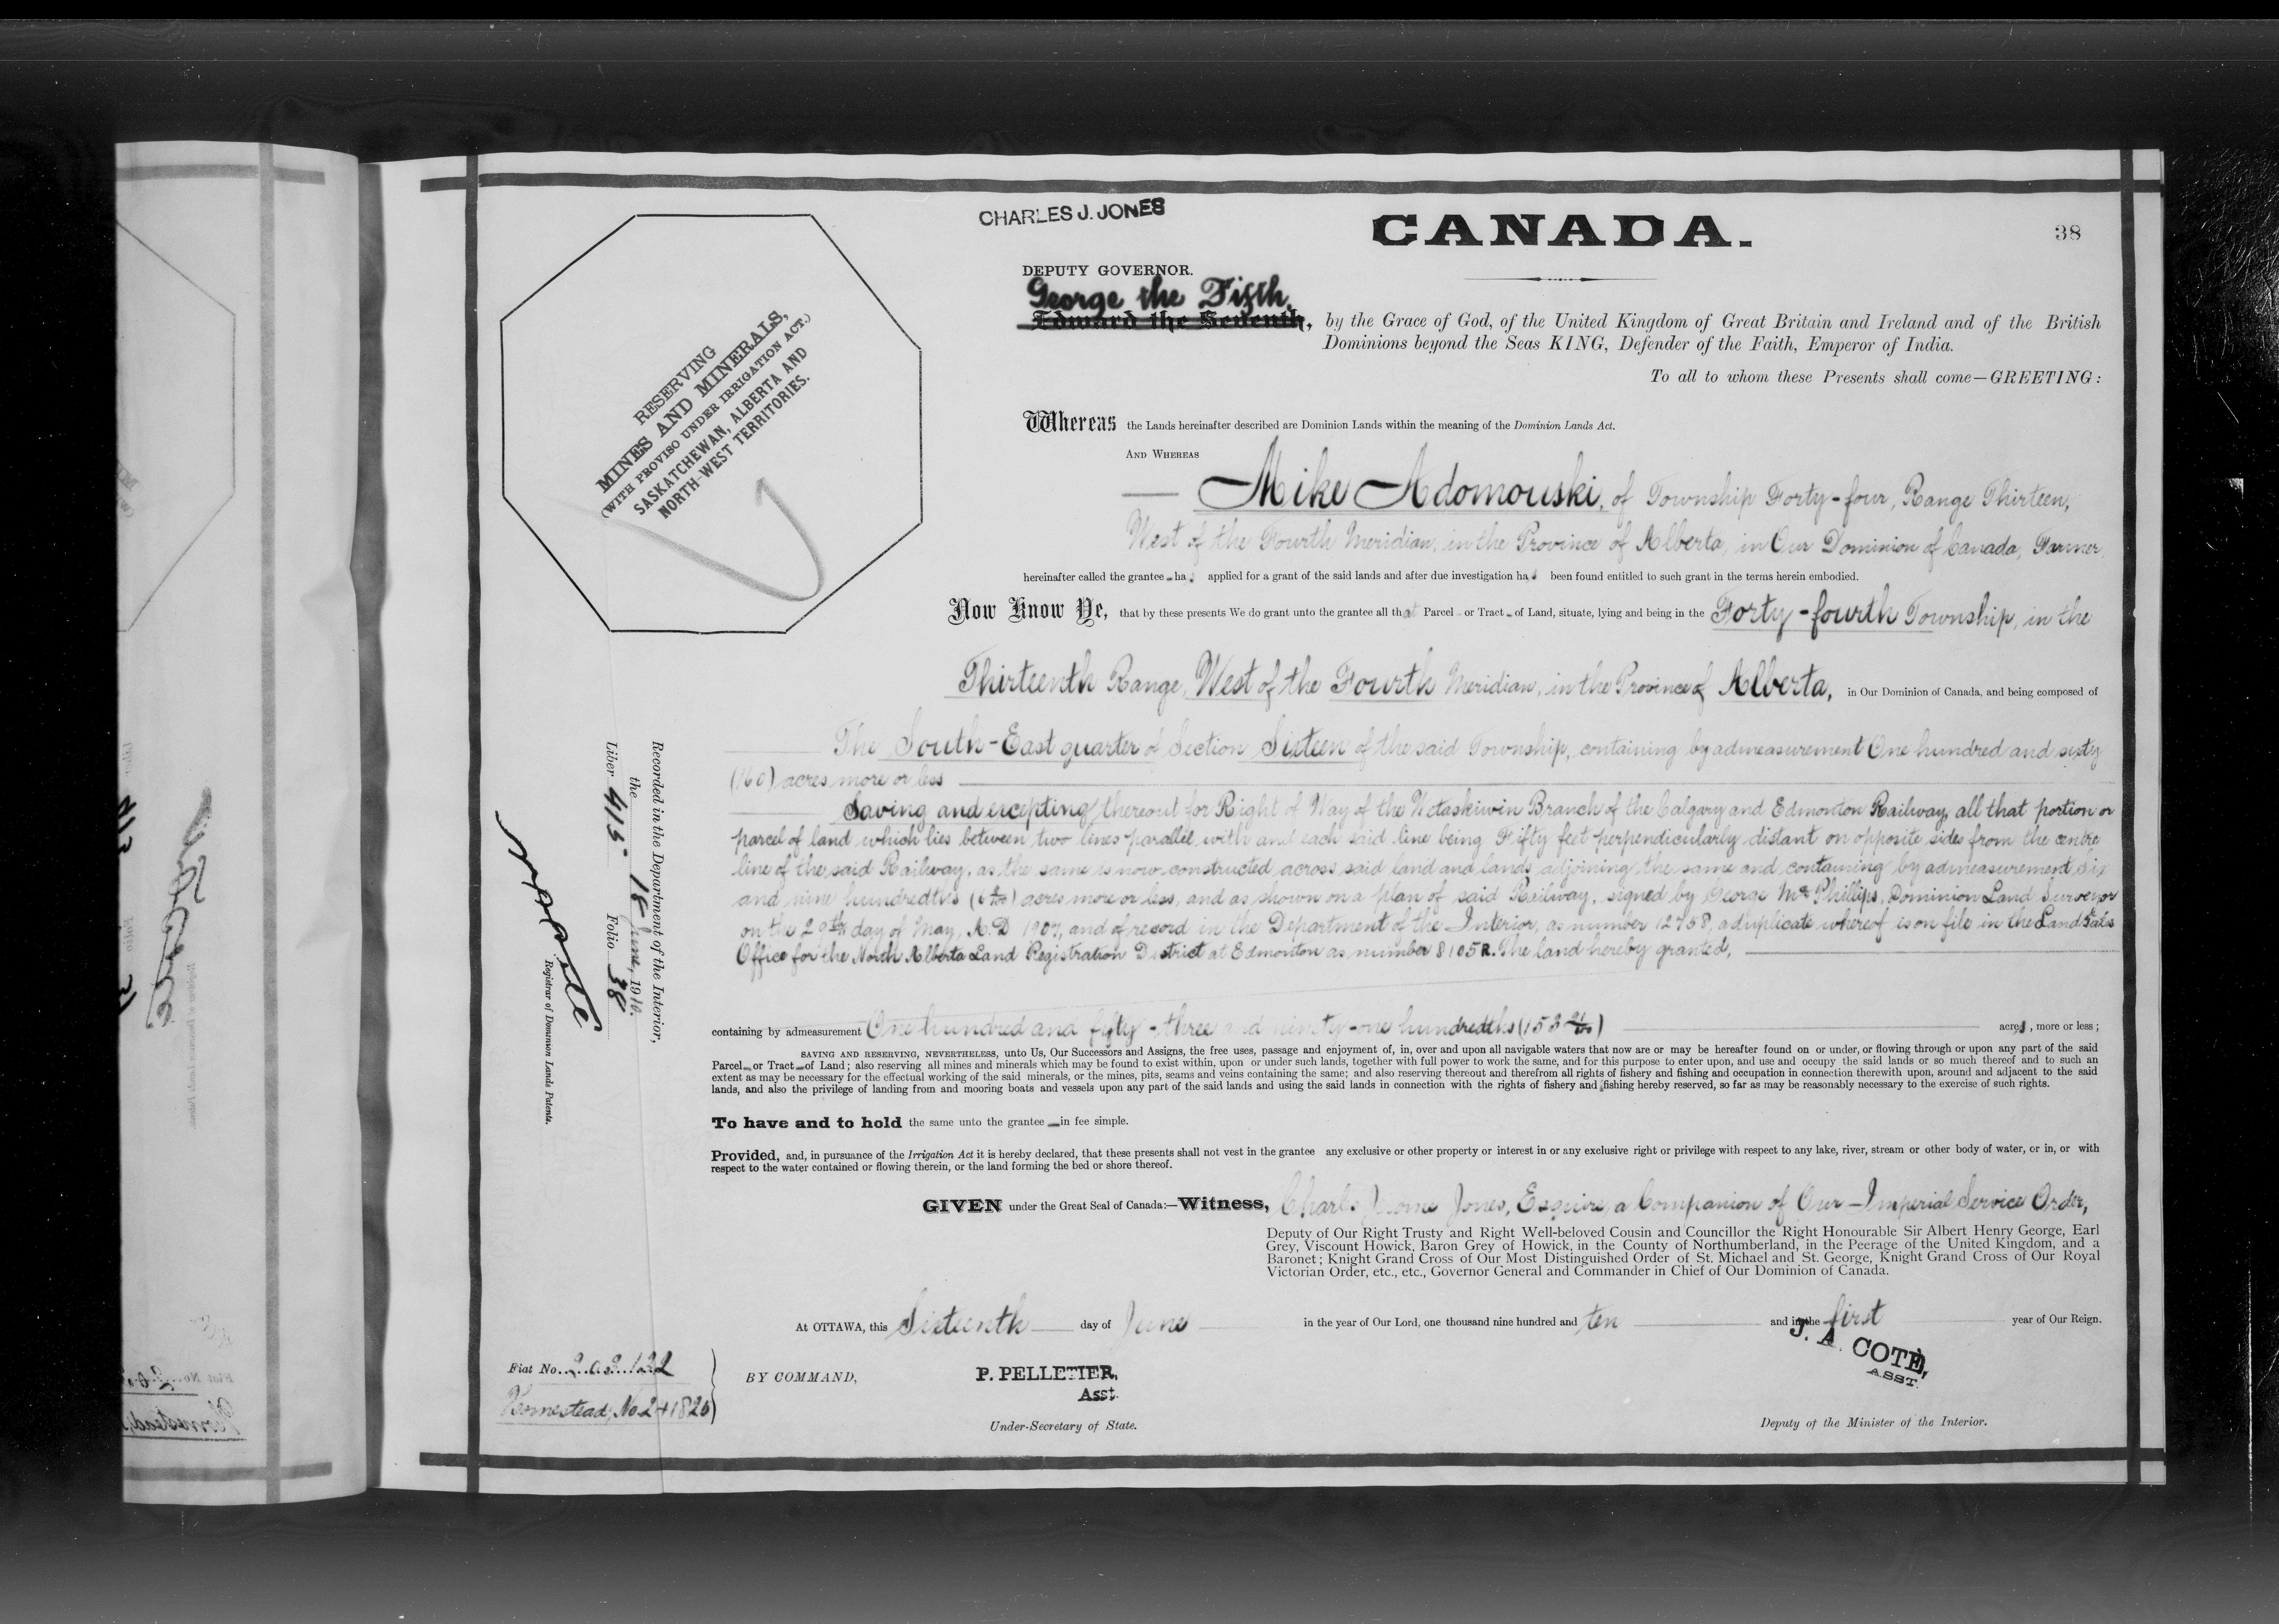 CHARLES J. JONES
CANADA.
38
DEPUTY GOVERNOR.
George the Fifth,
Edward the Seventh, by the Grace of God, of the United Kingdom of Great Britain and Ireland and of the British
Dominions beyond the Seas KING, Defender of the Faith, Emperor of India.
To all to whom these Presents shall come—GREETING:
RESERVING
MINES AND MINERALS,
(WITH PROVISO UNDER IRRIGATION ACT.)
SASKATCHEWAN, ALBERTA AND
NORTH-WEST TERRITORIES.
Whereas the Lands hereinafter described are Dominion Lands within the meaning of the Dominion Lands Act.
AND WHEREAS
Mike Adomouski, of Township Forty-four, Range Thirteen,
West of the Fourth Meridian, in the Province of Alberta, in Our Dominion of Canada, Farmer,
hereinafter called the grantee has applied for a grant of the said lands and after due investigation has been found entitled to such grant in the terms herein embodied.
Now Know Ye, that by these presents We do grant unto the grantee all that Parcel or Tract of Land, situate, lying and being in the Forty-fourth Township, in the
Thirteenth Range, West of the Fourth Meridian, in the Province of Alberta, in Our Dominion of Canada, and being composed of
The South-East quarter of Section Sixteen of the said Township, containing by admeasurement One hundred and sixty
(160) acres more or less
Saving and excepting thereout for Right of Way of the Wetaskiwin Branch of the Calgary and Edmonton Railway, all that portion or
parcel of land which lies between two lines parallel with and each said line being Fifty feet perpendicularly distant on opposite sides from the centre
line of the said Railway, as the same is now constructed across said land and lands adjoining the same and containing by admeasurement six
and nine hundredths (6 9/100) acres more or less, and as shown on a plan of said Railway, signed by George McPhillips, Dominion Land Surveyor
on the 29th day of May, A.D. 1907, and of record in the Department of the Interior, as number 12758, a duplicate whereof is on file in the Land Titles
Office for the North Alberta Land Registration District at Edmonton as number 8105R. The land hereby granted,
containing by admeasurement One hundred and fifty-three and ninety-one hundredths (153 91/100) acres, more or less;
SAVING AND RESERVING, NEVERTHELESS, unto Us, Our Successors and Assigns, the free uses, passage and enjoyment of, in, over and upon all navigable waters that now are or may be hereafter found on or under, or flowing through or upon any part of the said
Parcel or Tract of Land; also reserving all mines and minerals which may be found to exist within, upon or under such lands, together with full power to work the same, and for this purpose to enter upon, and use and occupy the said lands or so much thereof and to such an
extent as may be necessary for the effectual working of the said minerals, or the mines, pits, seams and veins containing the same; and also reserving thereout and therefrom all rights of fishery and fishing and occupation in connection therewith upon, around and adjacent to the said
lands, and also the privilege of landing from and mooring boats and vessels upon any part of the said lands and using the said lands in connection with the rights of fishery and fishing hereby reserved, so far as may be reasonably necessary to the exercise of such rights.
To have and to hold the same unto the grantee in fee simple.
Provided, and, in pursuance of the Irrigation Act it is hereby declared, that these presents shall not vest in the grantee any exclusive or other property or interest in or any exclusive right or privilege with respect to any lake, river, stream or other body of water, or in, or with
respect to the water contained or flowing therein, or the land forming the bed or shore thereof.
GIVEN under the Great Seal of Canada:—Witness, Charles Jerome Jones, Esquire, a Companion of Our Imperial Service Order,
Deputy of Our Right Trusty and Right Well-beloved Cousin and Councillor the Right Honourable Sir Albert Henry George, Earl
Grey, Viscount Howick, Baron Grey of Howick, in the County of Northumberland, in the Peerage of the United Kingdom, and a
Baronet; Knight Grand Cross of Our Most Distinguished Order of St. Michael and St. George, Knight Grand Cross of Our Royal
Victorian Order, etc., etc., Governor General and Commander in Chief of Our Dominion of Canada.
At OTTAWA, this Sixteenth day of June in the year of Our Lord, one thousand nine hundred and ten and in the first year of Our Reign.
BY COMMAND,
P. PELLETIER,
Asst.
Under-Secretary of State.
J. A. COTÉ,
ASST.
Deputy of the Minister of the Interior.
Recorded in the Department of the Interior,
the 18 June, 1910.
Liber 415 Folio 38
Registrar of Dominion Lands Patents.
Fiat No. 202122
Homestead No. 241820